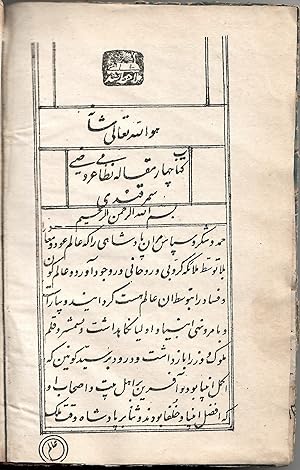 هو الله تعالی شأنه
کتاب چهار مقاله نظامی عروضی
سمرقندی
بسم الله الرحمن الرحیم
حمد و شکر و سپاس مر آن پادشاهی را که عالم عود و معاد
را بتوسط ملائکه کروبی و روحانی در وجود آورد و عالم کون
و فساد را بتوسط آن عالم هست گردانید و بیاراست
و بامر و نهی انبیا و اولیا نگاه داشت و بشمشیر و قلم
ملوک و وزرا باز داشت و درود بر سید کونین که
اکمل انبیا بود و آفرین بر اهل بیت و اصحاب او
که افضل اولیا و خلفا بودند و ثنا بر پادشاه وقت ملک